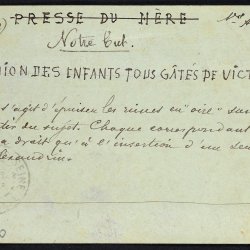 PRESSE DU MÈRE
Notre but.
NION DES ENFANTS TOUS GÂTÉS DE VICT
s'agit d'épuiser les rimes en "oire" sur
du sujet. Chaque correspondant
a droit qu'à l'insertion d'un seul
lexandrin.